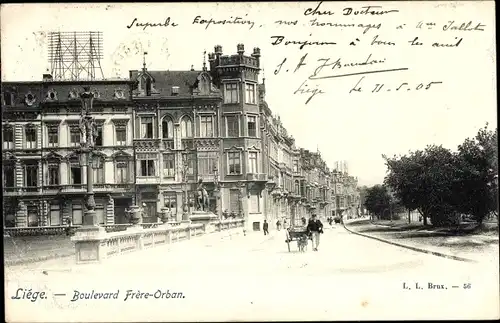 Cher Docteur
Superbe Exposition, nos hommages à Mme
Bonjour à tous les
Liège le 11-5-05
Liége. — Boulevard Frère-Orban.
L. L. Brux. — 56